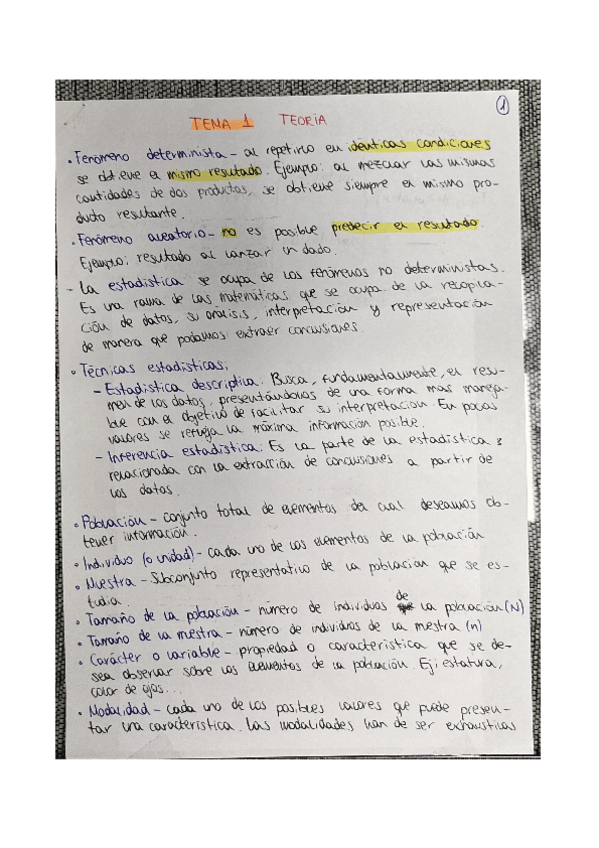 1
TEMA 1 TEORIA
• Fenómeno determinista - al repetirlo en idénticas condiciones
se obtiene el mismo resultado. Ejemplo: al mezclar las mismas
cantidades de dos productos, se obtiene siempre el mismo pro-
ducto resultante.
• Fenómeno aleatorio - no es posible predecir el resultado.
Ejemplo: resultado al lanzar un dado.
- La estadística se ocupa de los fenómenos no deterministas.
Es una rama de las matemáticas que se ocupa de la recopila-
ción de datos, su análisis, interpretación y representación
de manera que podamos extraer conclusiones.
• Técnicas estadísticas:
- Estadística descriptiva. Busca, fundamentalmente, el resu-
men de los datos, presentándolos de una forma mas maneja-
ble con el objetivo de facilitar su interpretación. En pocos
valores se refleja la máxima información posible.
- Inferencia estadística: Es la parte de la estadística
relacionada con la extracción de conclusiones a partir de
los datos.
• Población - conjunto total de elementos del cual deseamos ob-
tener información.
• Individuo (o unidad) - cada uno de los elementos de la población
• Muestra - Subconjunto representativo de la población que se es-
tudia.
• Tamaño de la población - número de individuos de la población (N)
• Tamaño de la mestra - número de individuos de la mestra (n)
• Carácter o variable - propiedad o característica que se de-
sea observar sobre los elementos de la población. Ej: estatura,
color de ojos...
• Modalidad - cada uno de los posibles valores que puede presen-
tar una característica. Las modalidades han de ser exhaustivas